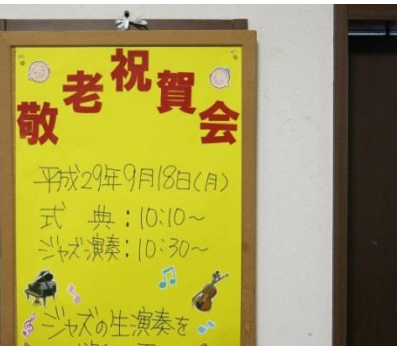 敬老祝賀会
平成29年9月18日(月)
式 典:10:10～
ジャズ演奏:10:30～
ジャズの生演奏を